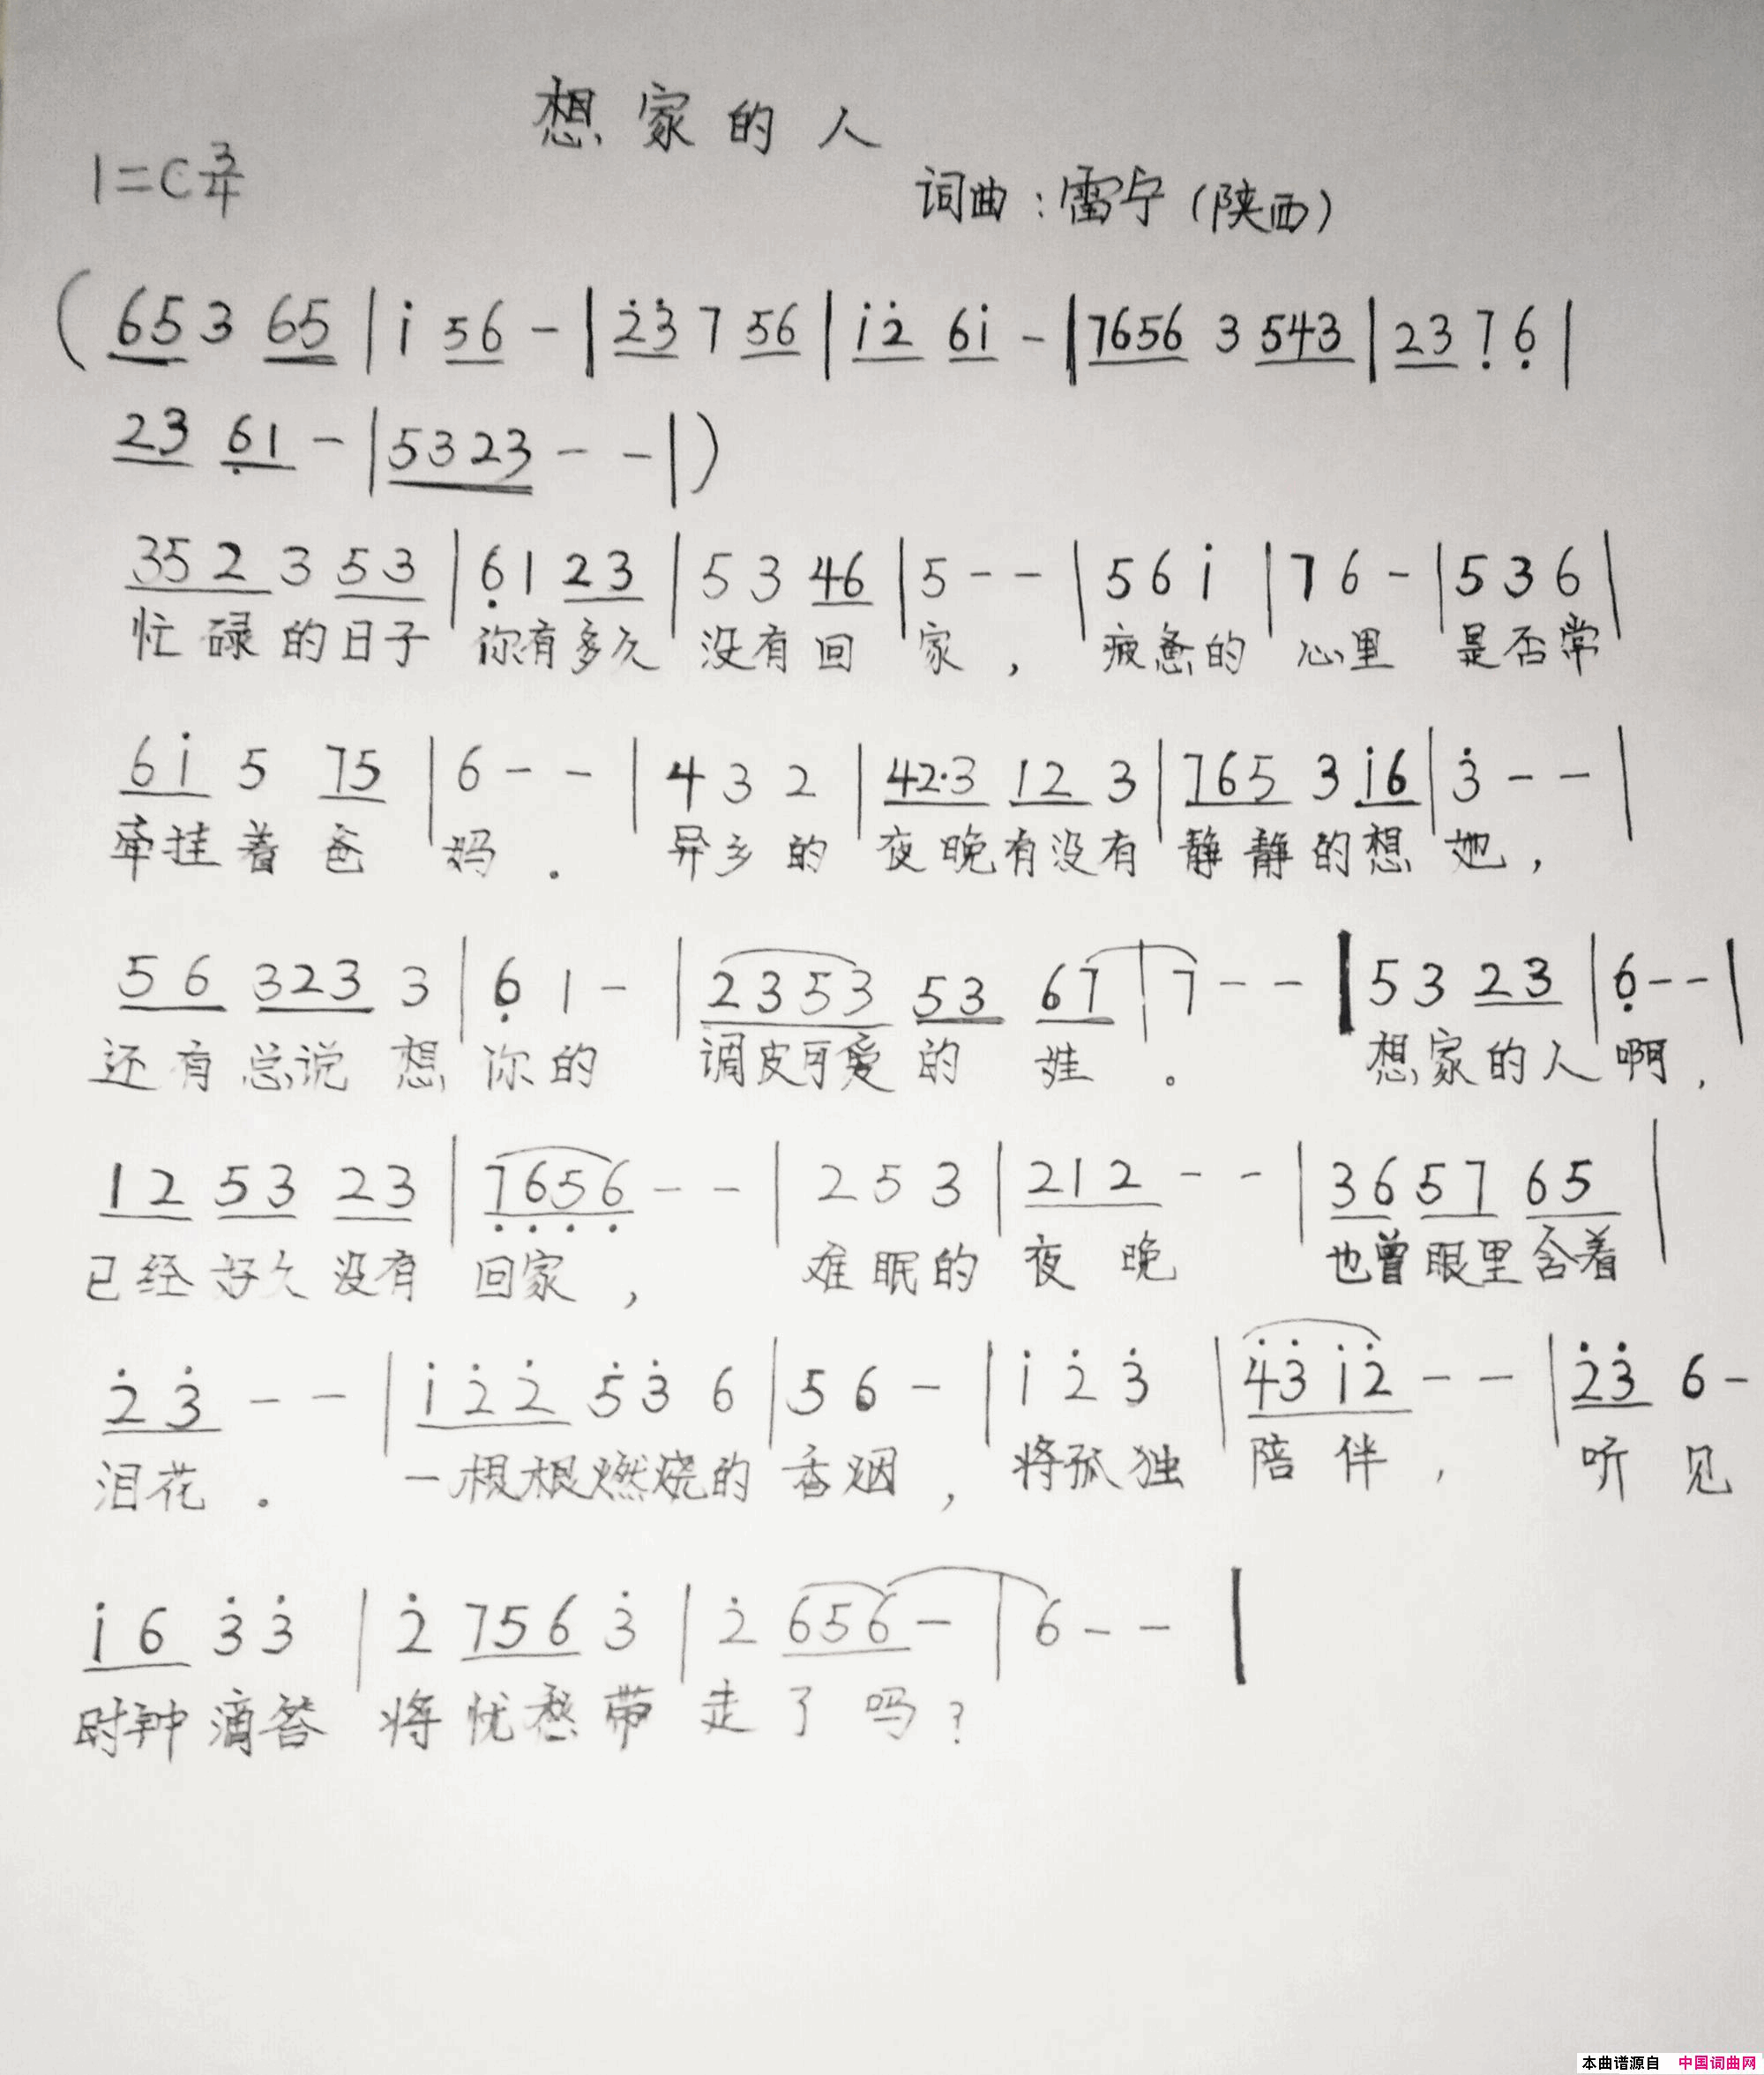 想家的人
1=C 3/4
词曲：雷宁（陕西）
（65 3 65 | i 56 - | 2̇3̇ 7 56 | i2̇ 6i - | 7656 3 543 | 23 7̣ 6̣ |
23 6̣1 - | 5323 - - |）
352 3 53 | 6̣ 1 23 | 5 3 46 | 5 - - | 5 6 i | 7 6 - | 5 3 6 |
忙碌的日子 你有多久 没有回家， 疲惫的 心里 是否常
6i 5 75 | 6 - - | 4 3 2 | 42·3 12 3 | 765 3 i6 | 3̇ - - |
牵挂着爸 妈． 异乡的 夜晚有没有 静静的想 她，
56 323 3 | 6̣ 1 - | 2353 53 67 | 7 - - | 5 3 23 | 6̣ - - |
还有总说想 你的 调皮可爱的 娃。 想家的人 啊，
12 53 23 | 7̣6̣5̣6̣ - - | 2 5 3 | 212 - - | 36 57 65 |
已经好久没有 回家， 难眠的 夜晚 也曾眼里含着
2̇3̇ - - | i2̇2̇ 5̇3̇ 6 | 5 6 - | i 2̇ 3̇ | 4̇3̇i2̇ - - | 2̇3̇ 6 -
泪花． 一根根燃烧的 香烟， 将孤独 陪伴， 听见
i6 3̇3̇ | 2̇ 756 3̇ | 2̇ 656 - | 6 - - |
时钟滴答 将忧愁带 走了吗？
本曲谱源自 中国词曲网